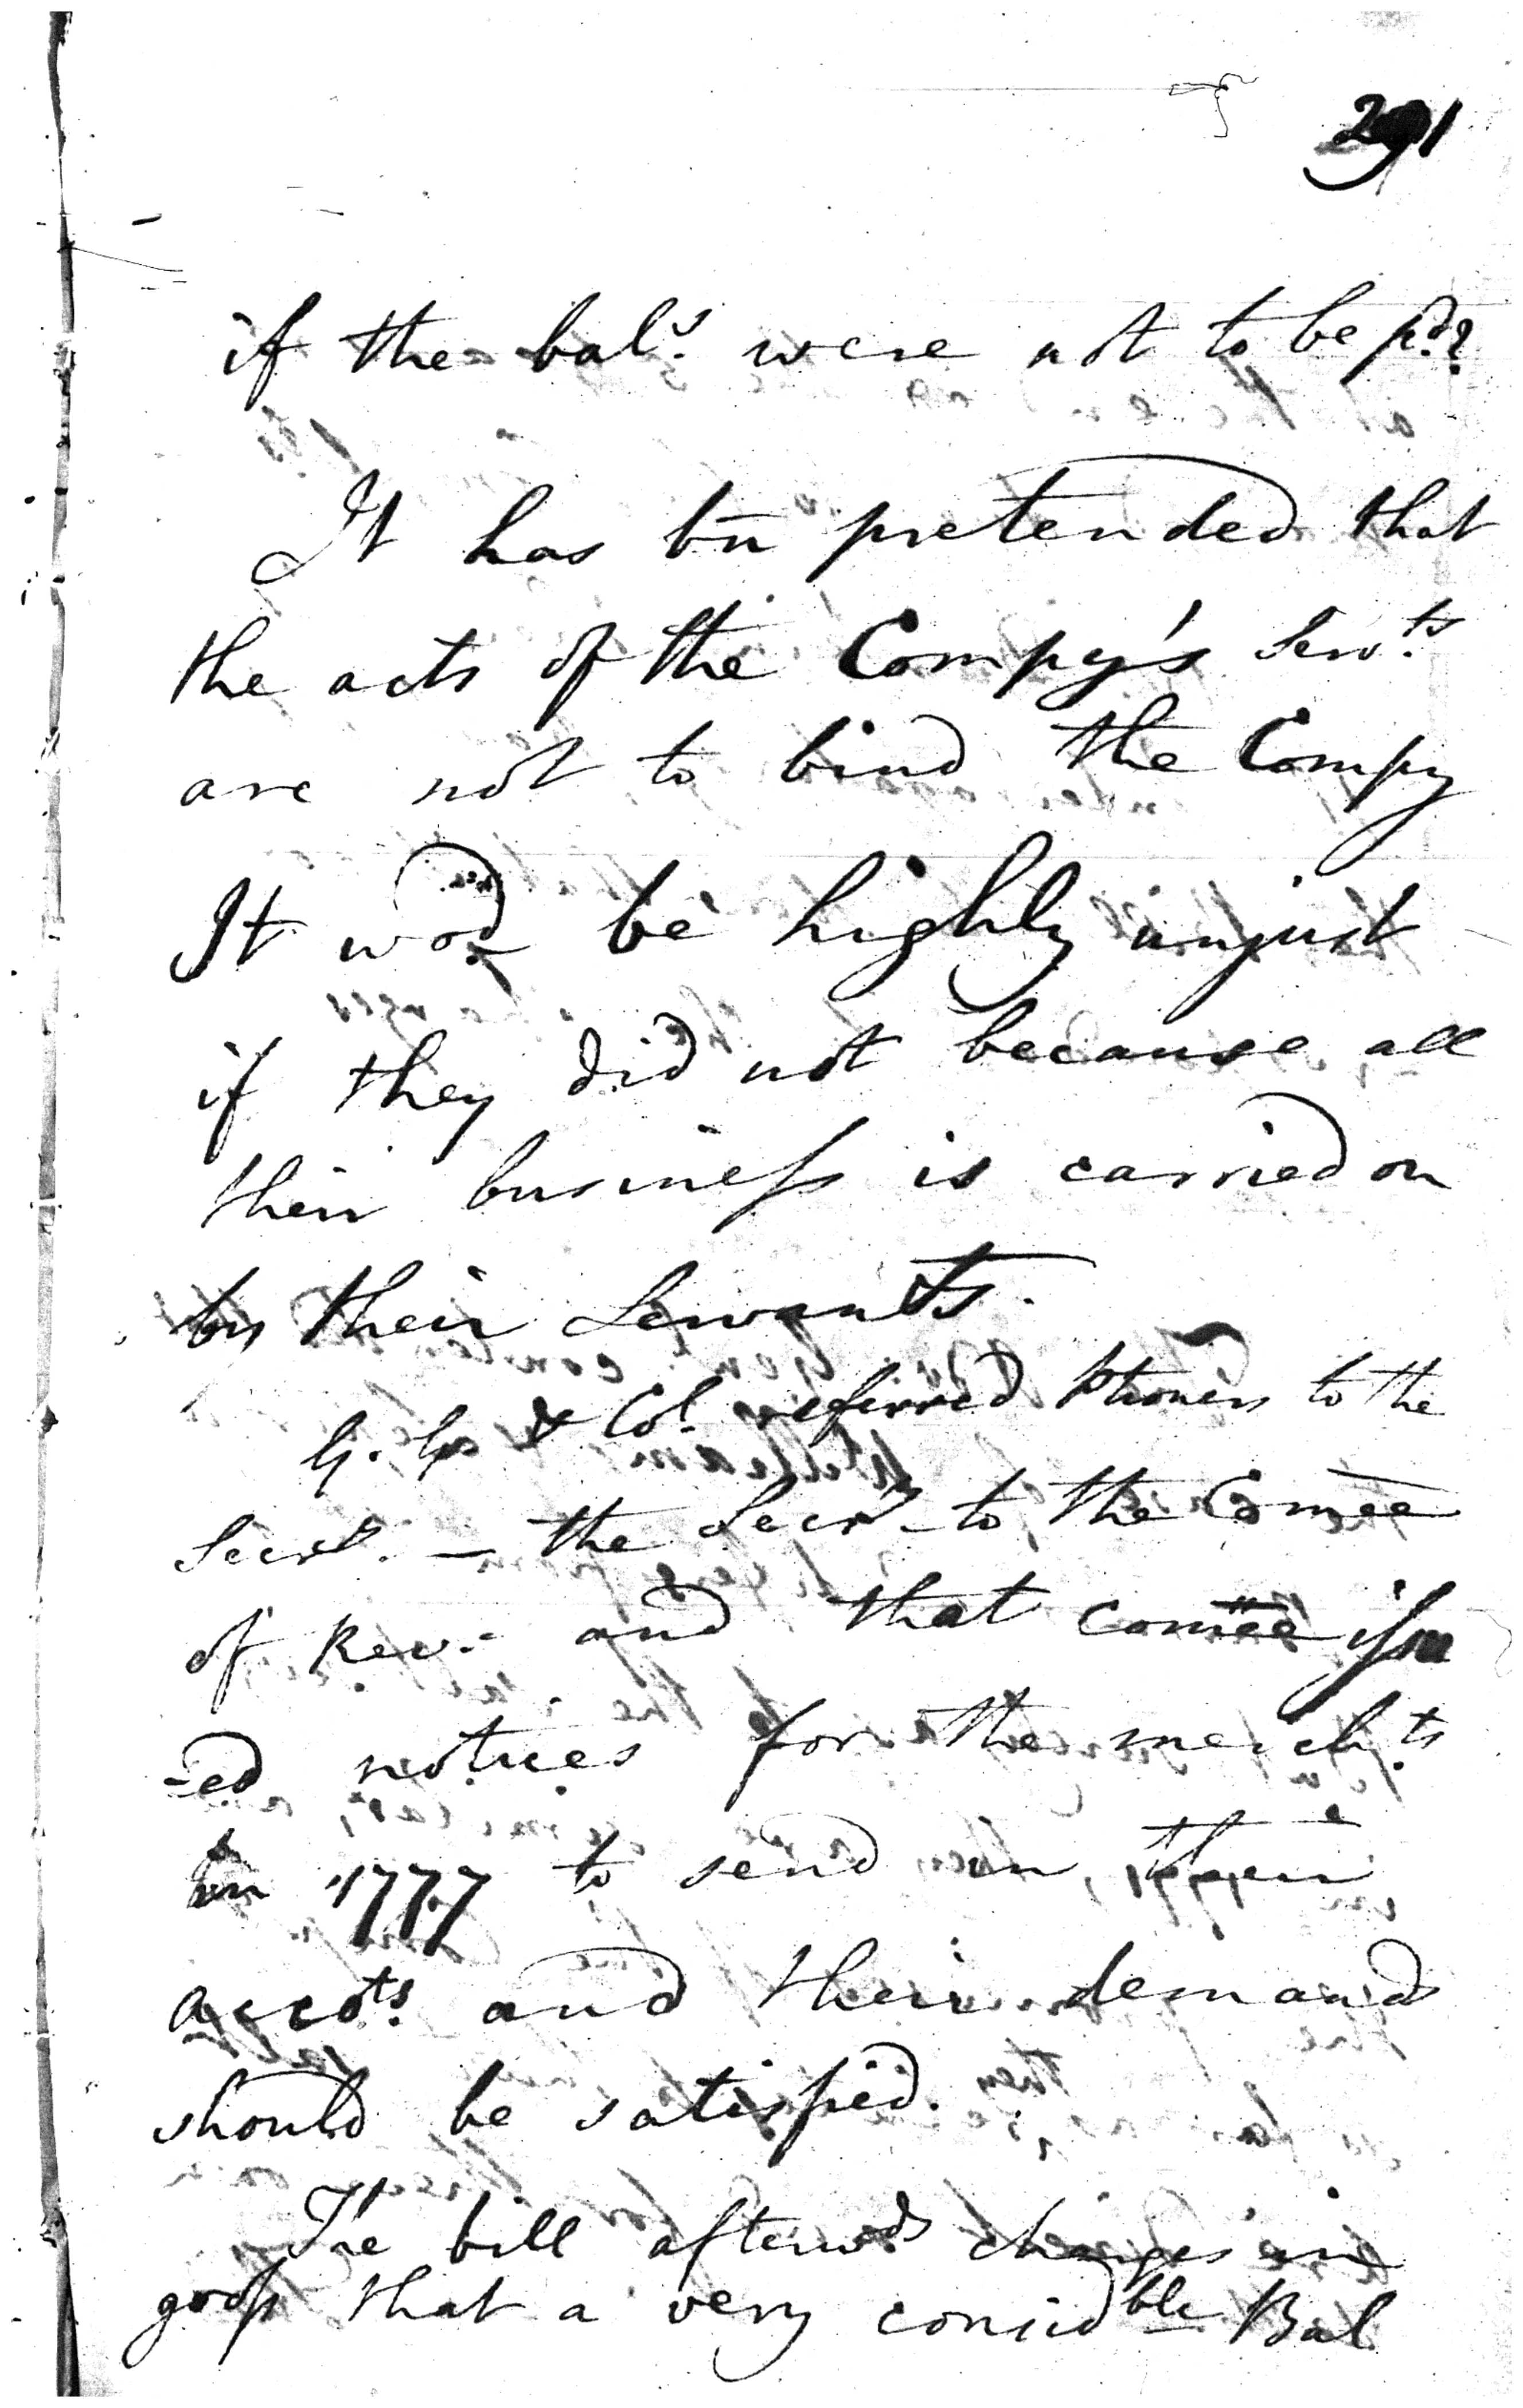 291
if the bals. were not to be pd?
It has bn pretended that
the acts of the Compy's servts.
are not to bind the Compy
It wod. be highly unjust
if they did not because all
their business is carried on
by their Servants.
G. G. & Col. referred to the
Secrt. — the Secrt. to the Comee
of Rev. and that comee issu
-ed notices for the mercht.s
in 1777 to send in, their
accots. and their demands
should be satisfied.
The bill afterwds. charges in
that a very considble Bal